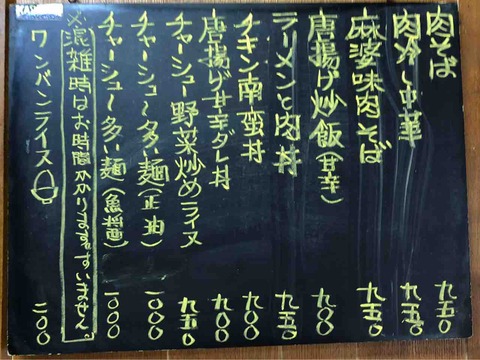 肉そば 九五〇
肉冷し中華 九五〇
麻婆味肉そば 九五〇
唐揚げ炒飯(甘辛) 九〇〇
ラーメンと肉丼 九五〇
チキン南蛮丼 九〇〇
唐揚げ甘辛ダレ丼 九〇〇
チャーシュー野菜炒めライス 九五〇
チャーシュ〜多い麺(正油) 一〇〇〇
チャーシュ〜多い麺(魚醤) 一〇〇〇
※混雑時はお時間かかります。すいません。
ワンバンライス 二〇〇